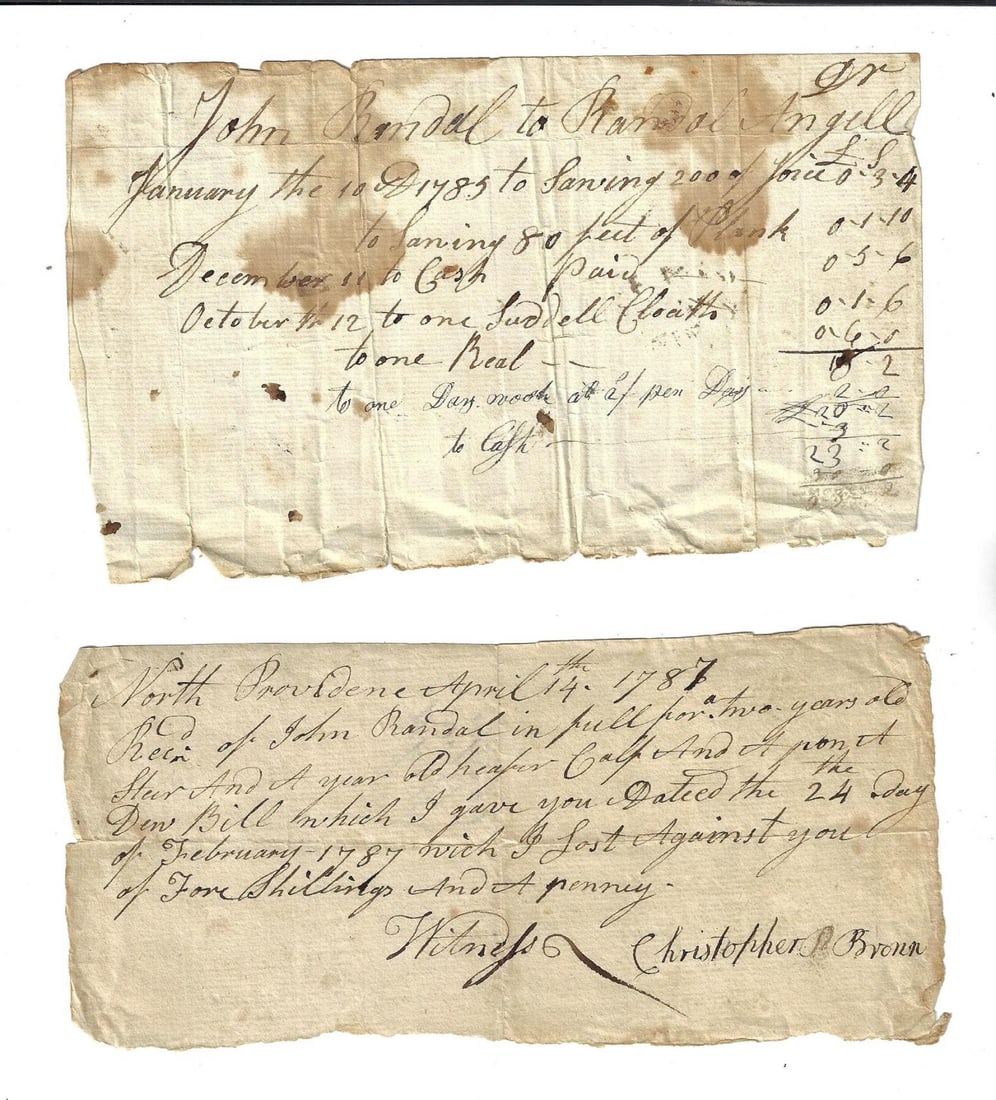 Dr
John Randal to Randal Angell
£ S
January the 10 D 1785 to Sawing 200 of Joice 0-3-4
to Sawing 80 feet of Plank 0-1-10
December 11 to Cash Paid 0-5-6
October th 12 to one Suddell Cloath 0-1-6
to one Real — 0-6-0
18-2
to one Days work at 2/ per Day 2-0
20-2
to Cash — 3
23-2
North Providene April 14the 1787
Recd of John Randal in full for a two years old
Steer And A year old heafer Calf And A pon A
Dew Bill which I gave you Dateed the 24the day
of February 1787 wich I Lost Against you
of Fore Shillings And A penney-
Witness Christopher Brown